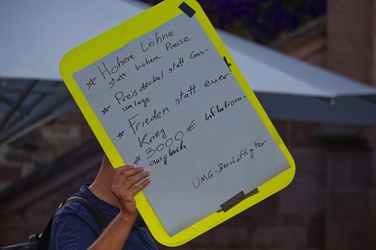 * Höhere Löhne
statt höhere Preise
* Preisdeckel statt Gas-
umlage
* Frieden statt euer
Krieg
* 3000 € Inflations-
ausgleich
UMG-Beschäftigter